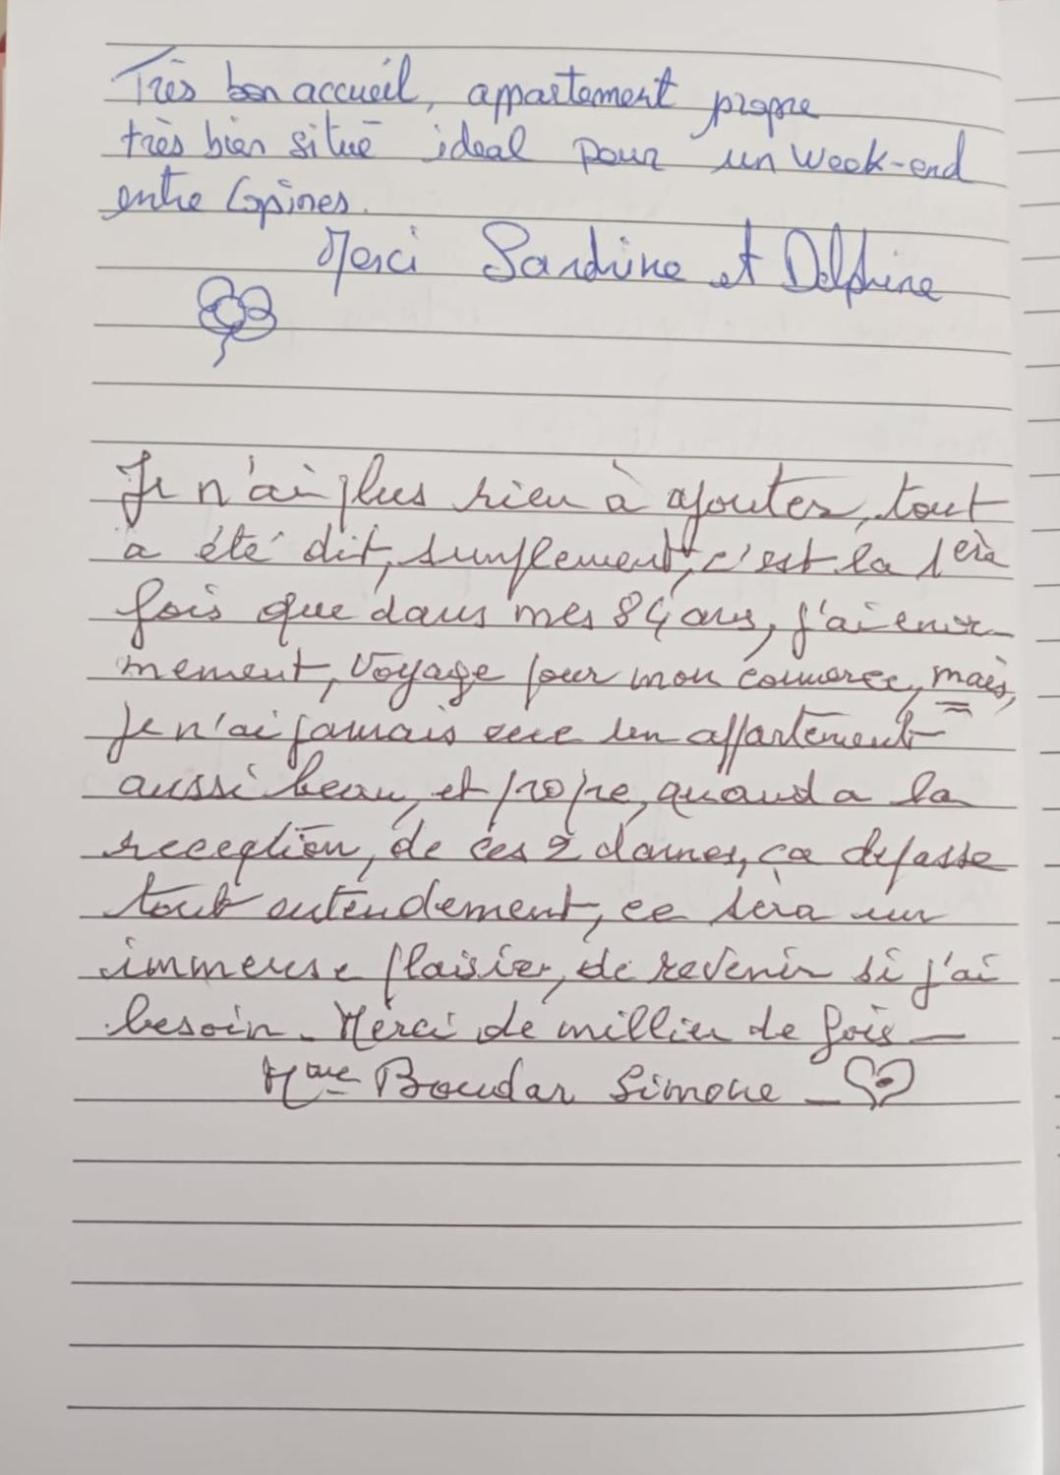 Très bon accueil, appartement propre
très bien situé ideal pour un week-end
entre Copines.
Merci Sandrine et Delphine
Je n'ai plus rien à ajouter, tout
a été dit, simplement, c'est la 1erè
fois que dans mes 84 ans, j'ai enor-
mement, voyage pour mon comerce, mais,
Je n'ai jamais vue un appartement
aussi beau, et propre, quand a la
reception, de ces 2 dames, ça depasse
tout entendement, ce sera un
immense plaisir, de revenir si j'ai
besoin. Merci de millier de fois -
Mme Boudar Simone -